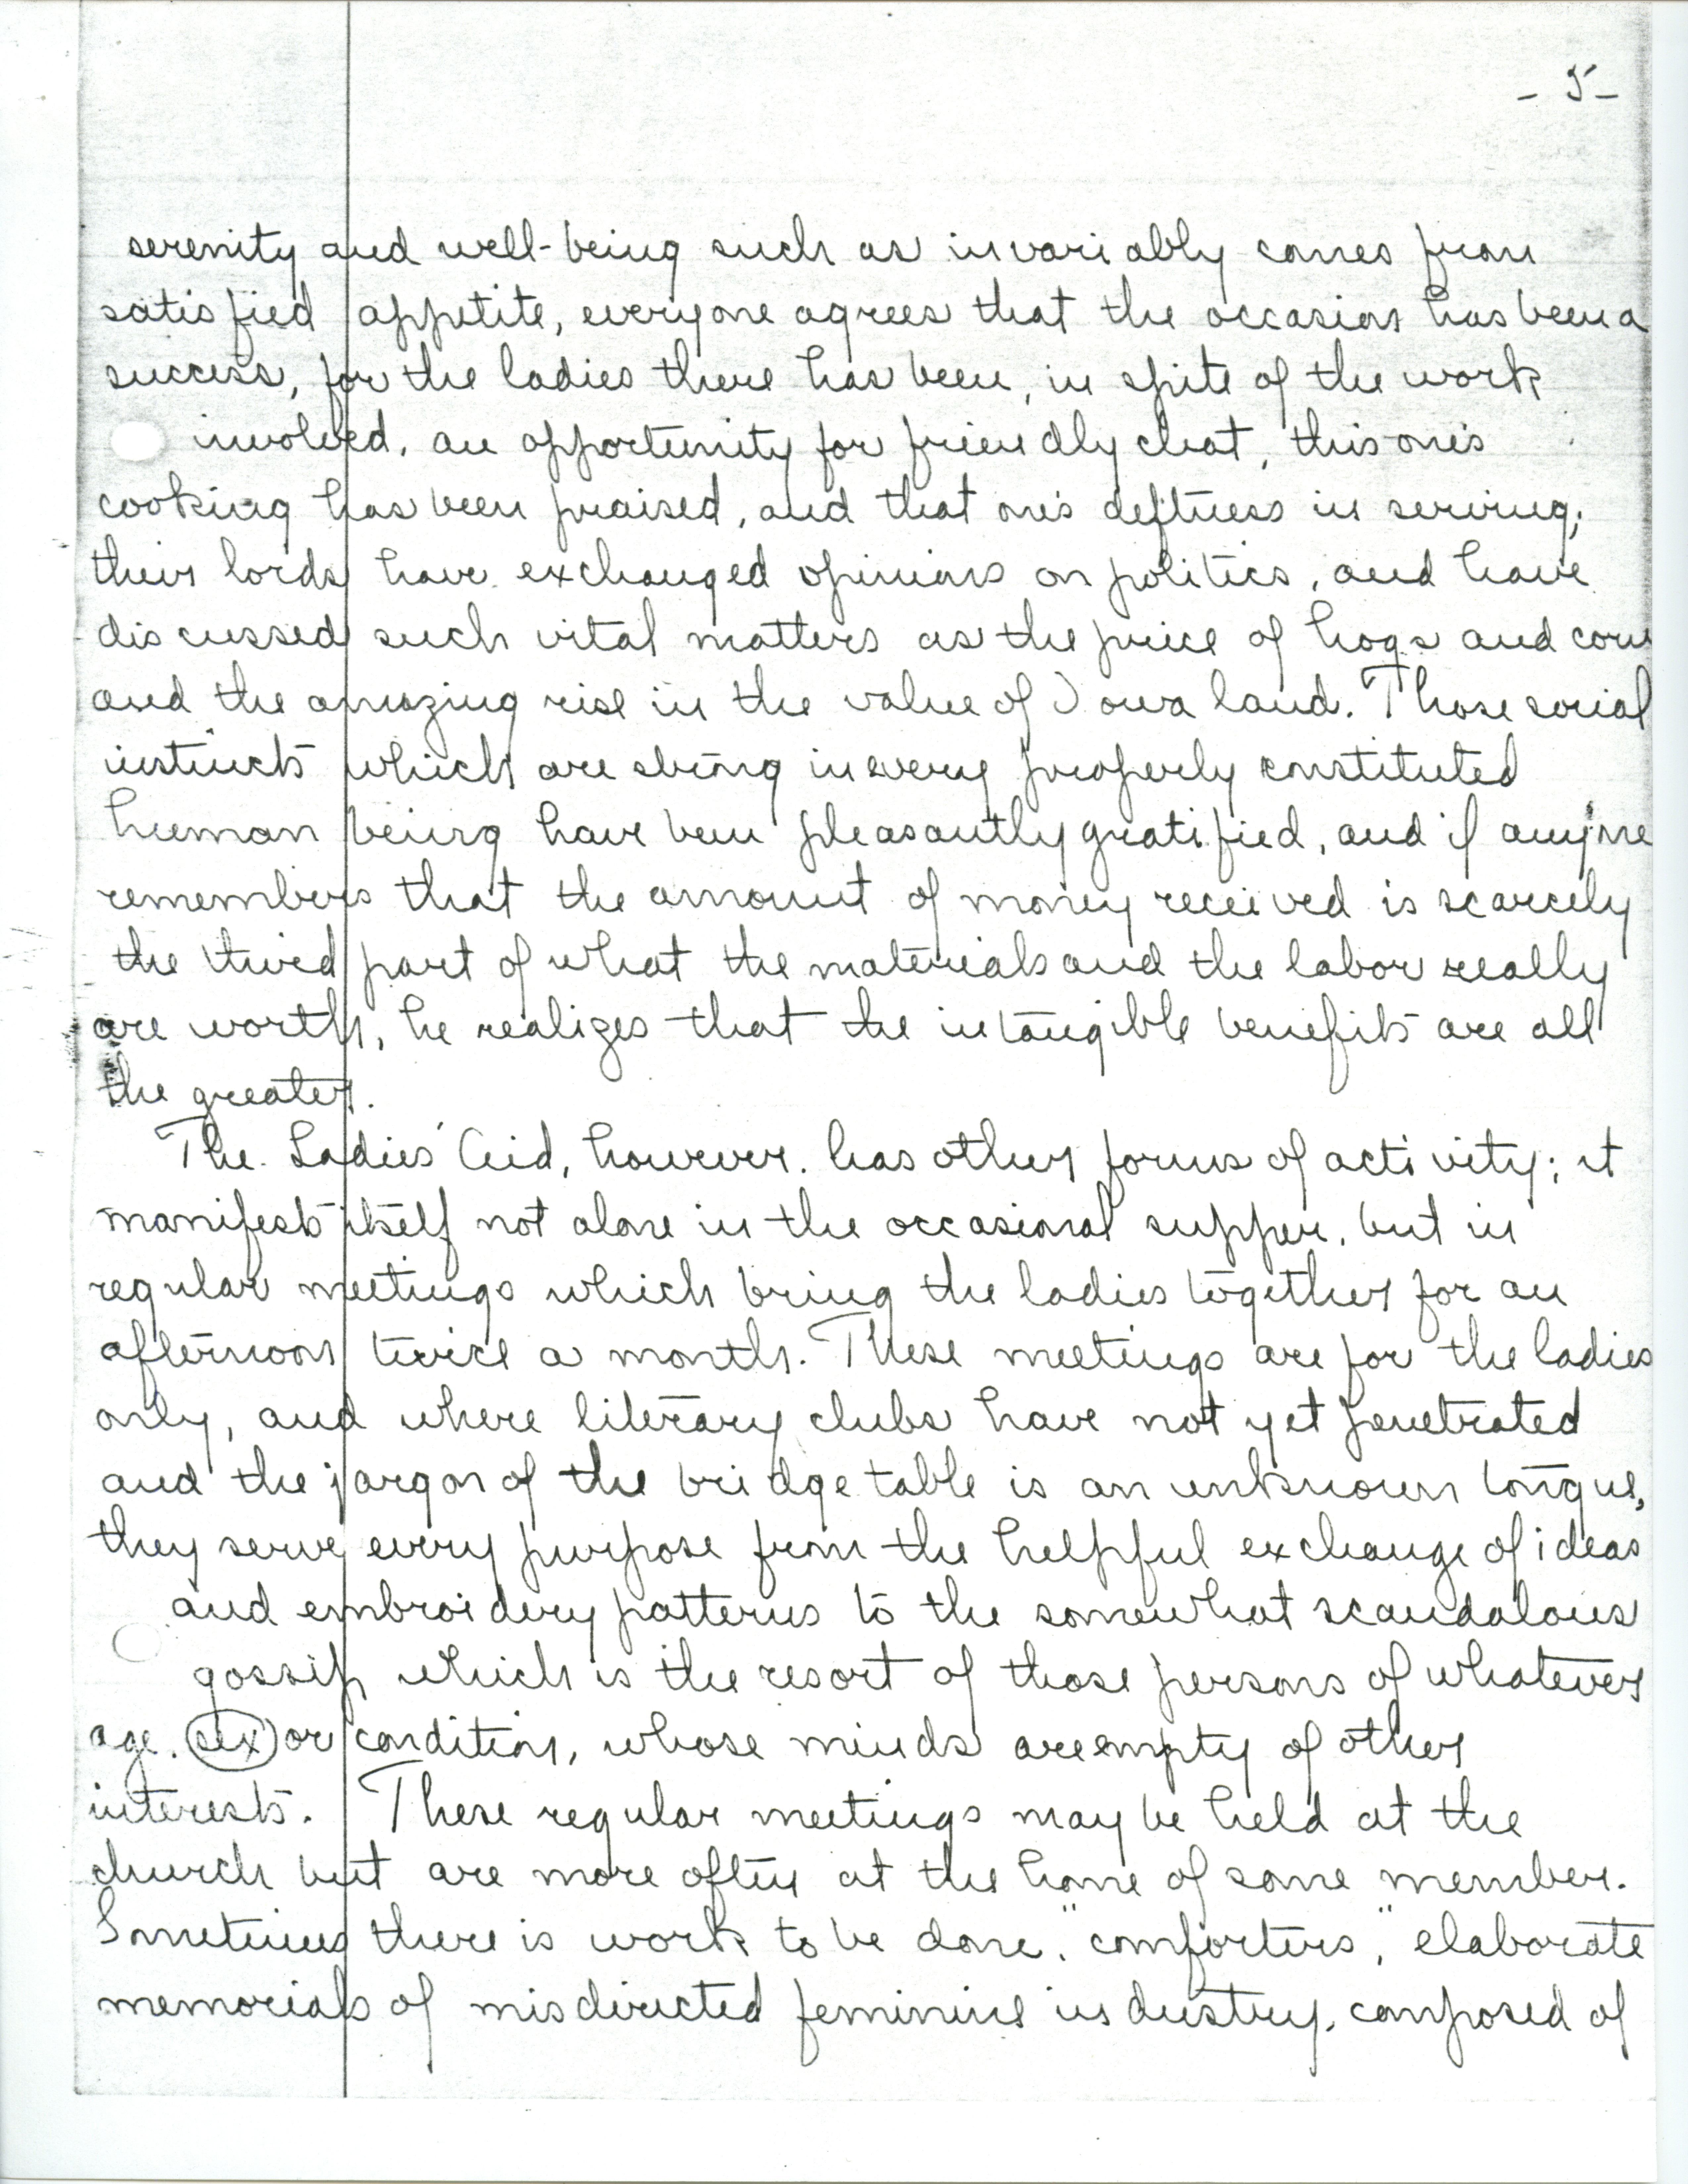 - 5 -
serenity and well-being such as invariably comes from
satisfied appetite, everyone agrees that the occasion has been a
success, for the ladies there has been, in spite of the work
involved, an opportunity for friendly chat, this one's
cooking has been praised, and that one's deftness in serving;
their lords have exchanged opinions on politics, and have
discussed such vital matters as the price of hogs and corn
and the amazing rise in the value of Iowa land. Those social
instincts which are strong in every properly constituted
human being have been pleasantly gratified, and if anyone
remembers that the amount of money received is scarcely
the third part of what the materials and the labor really
are worth, he realizes that the intangible benefits are all
the greater.
The Ladies' Aid, however, has other forms of activity; it
manifests itself not alone in the occasional supper, but in
regular meetings which bring the ladies together for an
afternoon twice a month. These meetings are for the ladies
only, and where literary clubs have not yet penetrated
and the jargon of the bridge table is an unknown tongue,
they serve every purpose from the helpful exchange of ideas
and embroidery patterns to the somewhat scandalous
gossip which is the resort of those persons of whatever
age, sex or condition, whose minds are empty of other
interests. These regular meetings may be held at the
church but are more often at the home of some member.
Sometimes there is work to be done, "comforters," elaborate
memorials of misdirected feminine industry, composed of